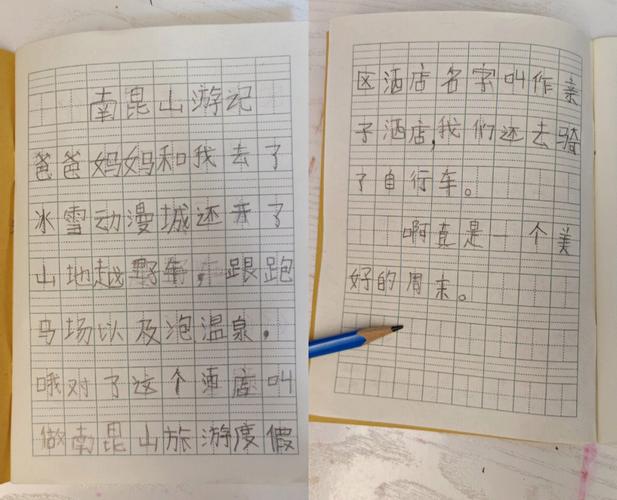 南昆山游记
爸爸妈妈和我去了
冰雪动漫城还开了
山地越野车，跟跑
马场以及泡温泉。
哦对了这个酒店叫
做南昆山旅游度假
区酒店名字叫作亲
子酒店,我们还去骑
了自行车。
啊真是一个美
好的周末。